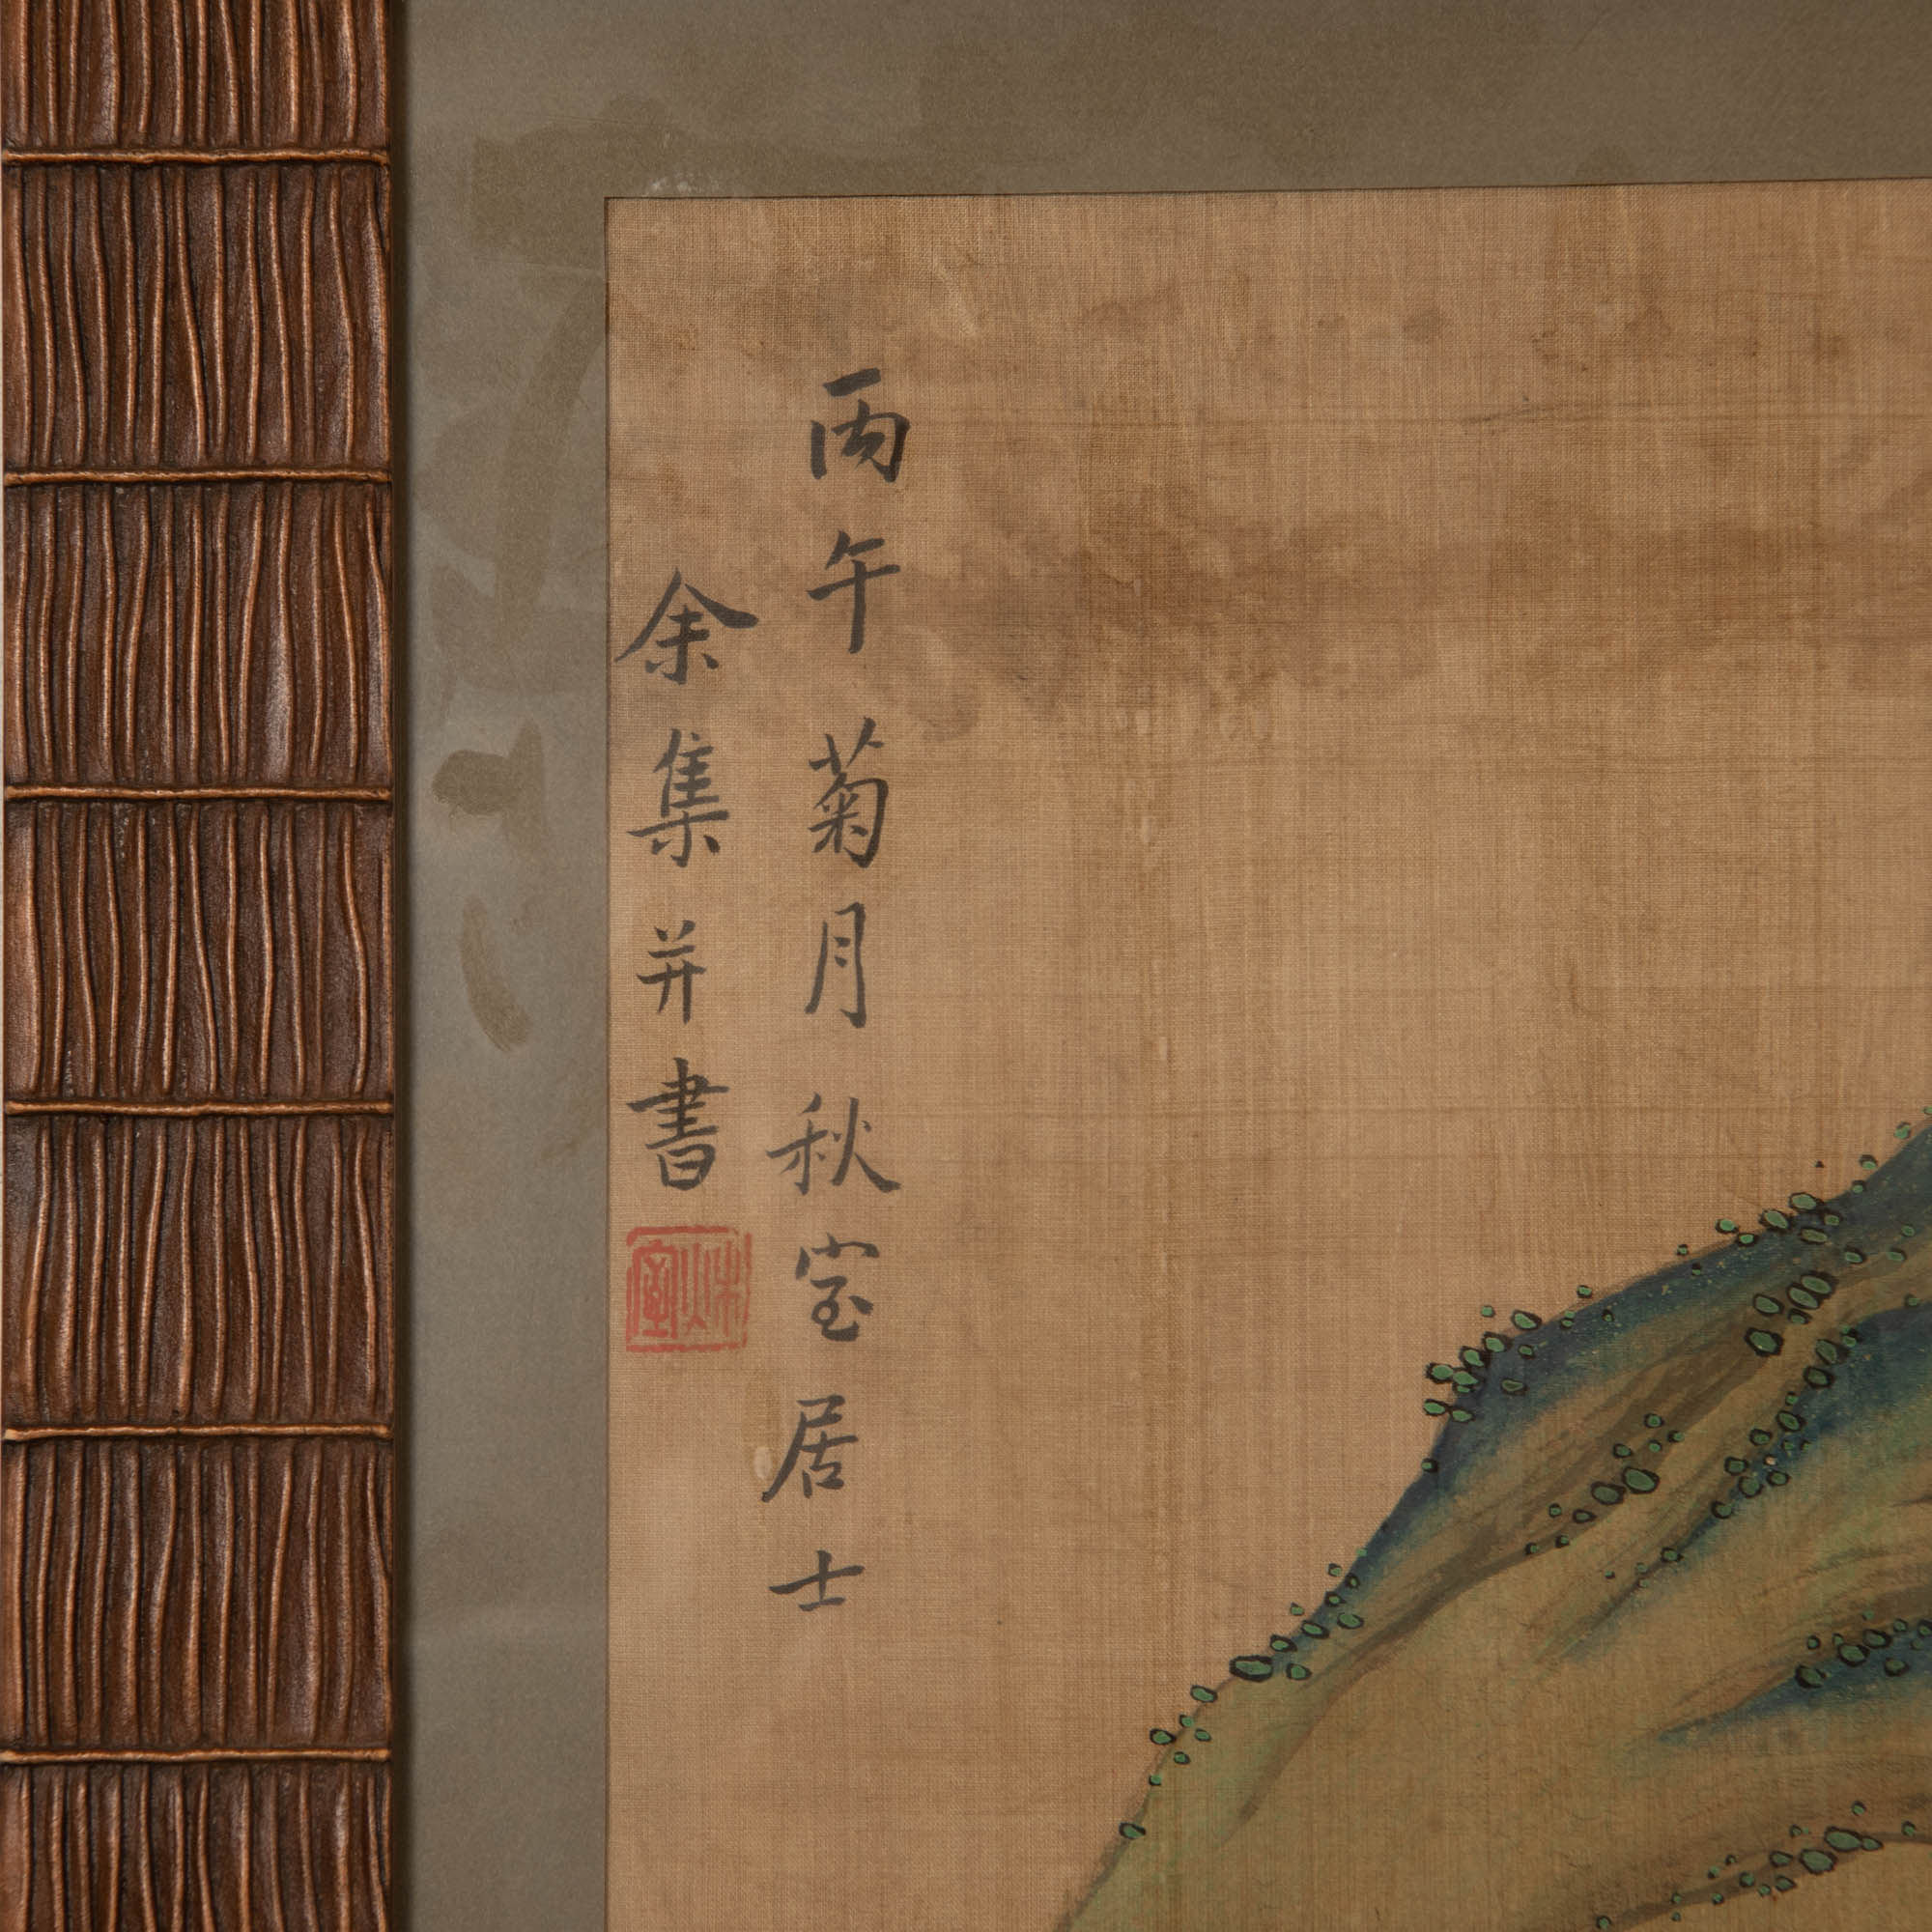 丙午菊月秋室居士
余集并書
秋室